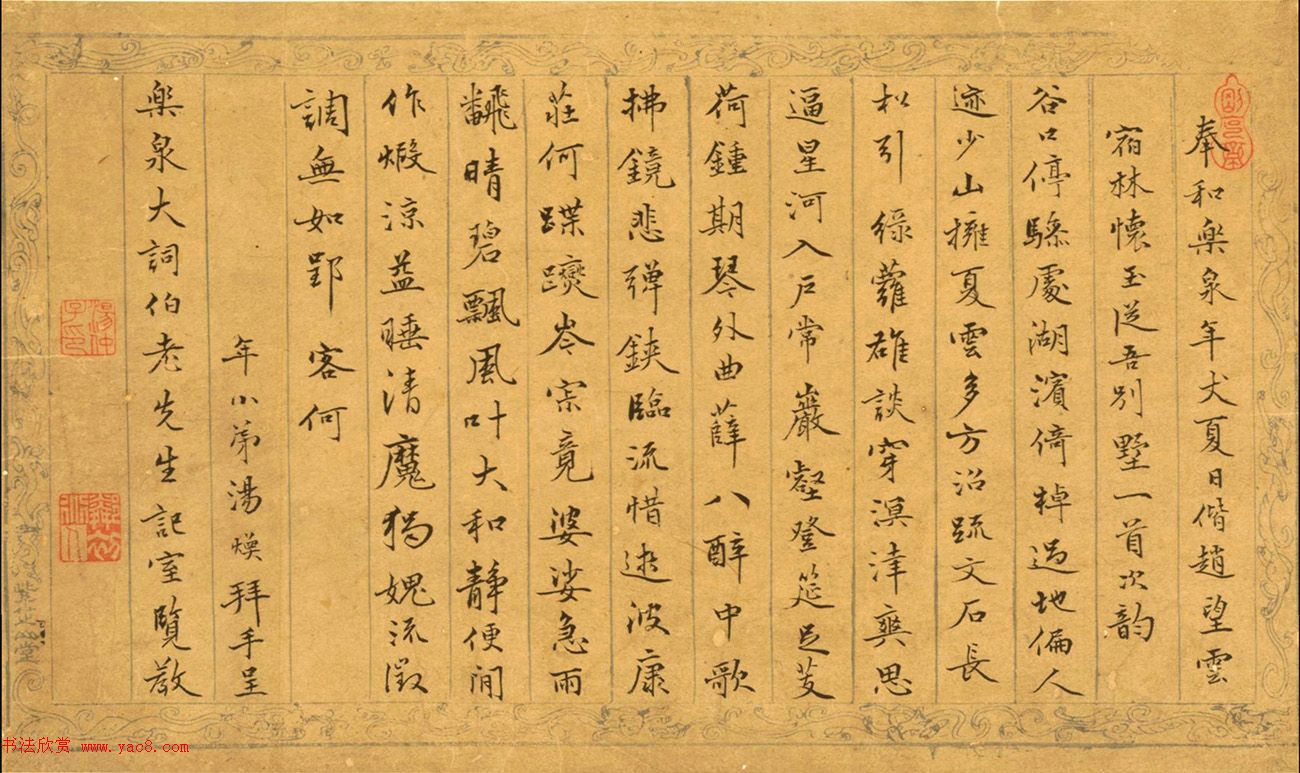 奉和樂泉年丈夏日偕趙望雲
宿林懷玉從吾別墅一首次韵
谷口停驂處湖濱倚棹過地偏人
迹少山擁夏雲多方沼疏文石長
松引綠蘿雄談穿溟涬爽思
逼星河入戶常巖壑登筵足芰
荷鍾期琴外曲薛八醉中歌
拂鏡悲彈鋏臨流惜逝波康
莊何蹀躞岑寂竟婆娑急雨
飜晴碧飄風叶大和靜便閒
作煅涼益睡清魔獨媿流徵
調無如郢客何
年小弟湯煥拜手呈
樂泉大詞伯老先生記室覽教
書法欣赏 www.yac8.com